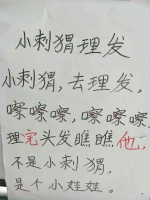 小刺猬理发
小刺猬,去理发,
嚓嚓嚓,嚓嚓嚓
理完头发瞧瞧他,
不是小刺猬,
是个小娃娃。